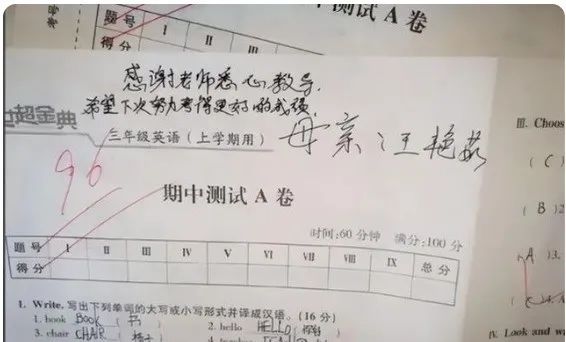 测试 A 卷
题号 I II III
得分
感谢老师悉心教导
希望下次努力考得更好的成绩
超金典
三年级英语(上学期用)
母亲汪艳茹
96
期中测试 A 卷
时间:60 分钟 满分:100 分
题号 I II III IV V VI VII VIII IX 总分
得分
I. Write. 写出下列单词的大写或小写形式并译成汉语。(16 分)
1. book BOOK ( 书
2. hello HELLO (
3. chair CHAIR ( 椅子
III. Choos
( C )
( B )2
A )3.
IV. Look and w